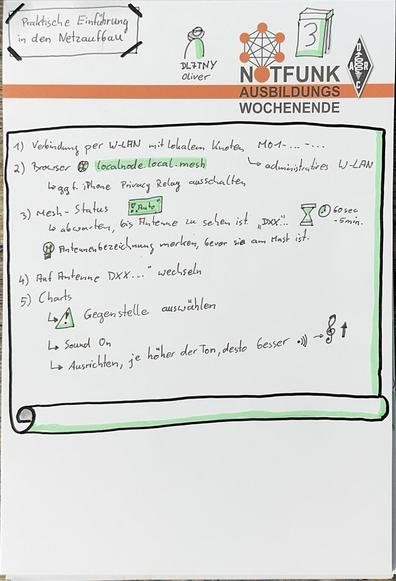 Praktische Einführung
in den Netzaufbau
DL7TNY
Oliver
3
NOTFUNK
AUSBILDUNGS
WOCHENENDE
DARC
1) Verbindung per W-LAN mit lokalem Knoten M01-...-...
2) Browser localnode.local.mesh
↳ administratives W-LAN
↳ ggf. iPhone Privacy Relay ausschalten
3) Mesh-Status "Auto"
↳ abwarten, bis Antenne zu sehen ist "DXX"...
60 sec
-5min.
Antennenbezeichnung merken, bevor sie am Mast ist.
4) Auf Antenne DXX..." wechseln
5) Charts
↳ Gegenstelle auswählen
↳ Sound On
↳ Ausrichten, je höher der Ton, desto besser